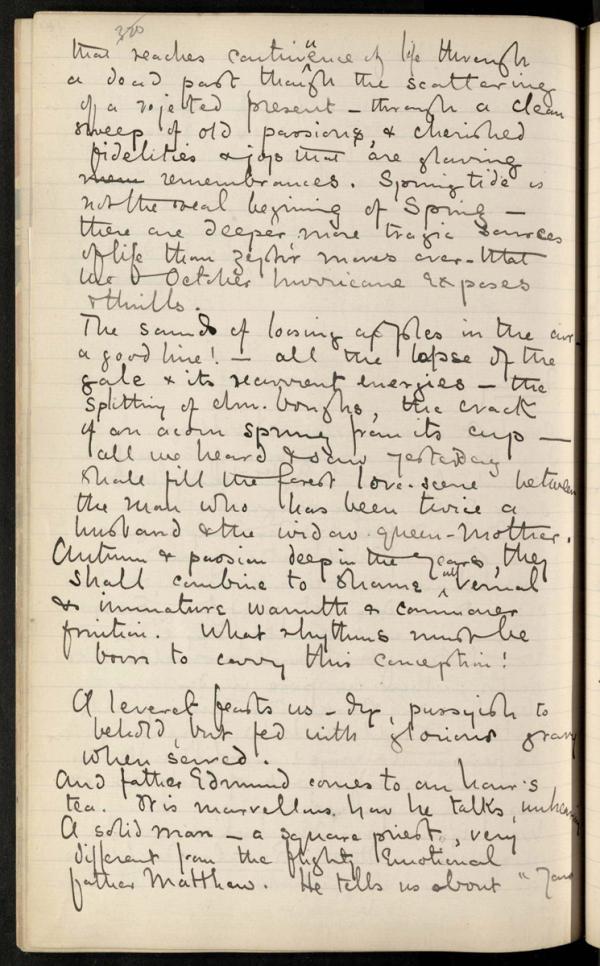 350
that reaches continuence of life through
a dead past though the scattering
of a rejected present – through a clean
sweep of old passions, & cherished
fidelities & joys that are glowing
remembrances. Springtide is
not the real begining of Spring –
there are deeper more tragic sources
of life than zephir moves over – that
the October hurricane exposes
& thrills.
The sound of loosing apples in the air –
a good line! – all the lapse of the
gale & its recurrent energies – the
splitting of elm-boughs, the crack
of an acorn sprung from its cup –
all we heard & saw yesterday
shall fill the forest love-scene between
the man who has been twice a
husband & the widow queen-mother.
Autumn & passion deep in the years, they
shall combine to shame all vernal
& immature warmth & commoner
fruition. What rhythms must be
born to carry this conception!
A leveret feasts us – dry, pussyish to
behold, but fed with glorious gravy
when served.
And father Edmund comes to an hour's
tea. It is marvellous how he talks,
A solid man – a square priest, very
different from the flighty emotional
father Matthew. He tells us about "